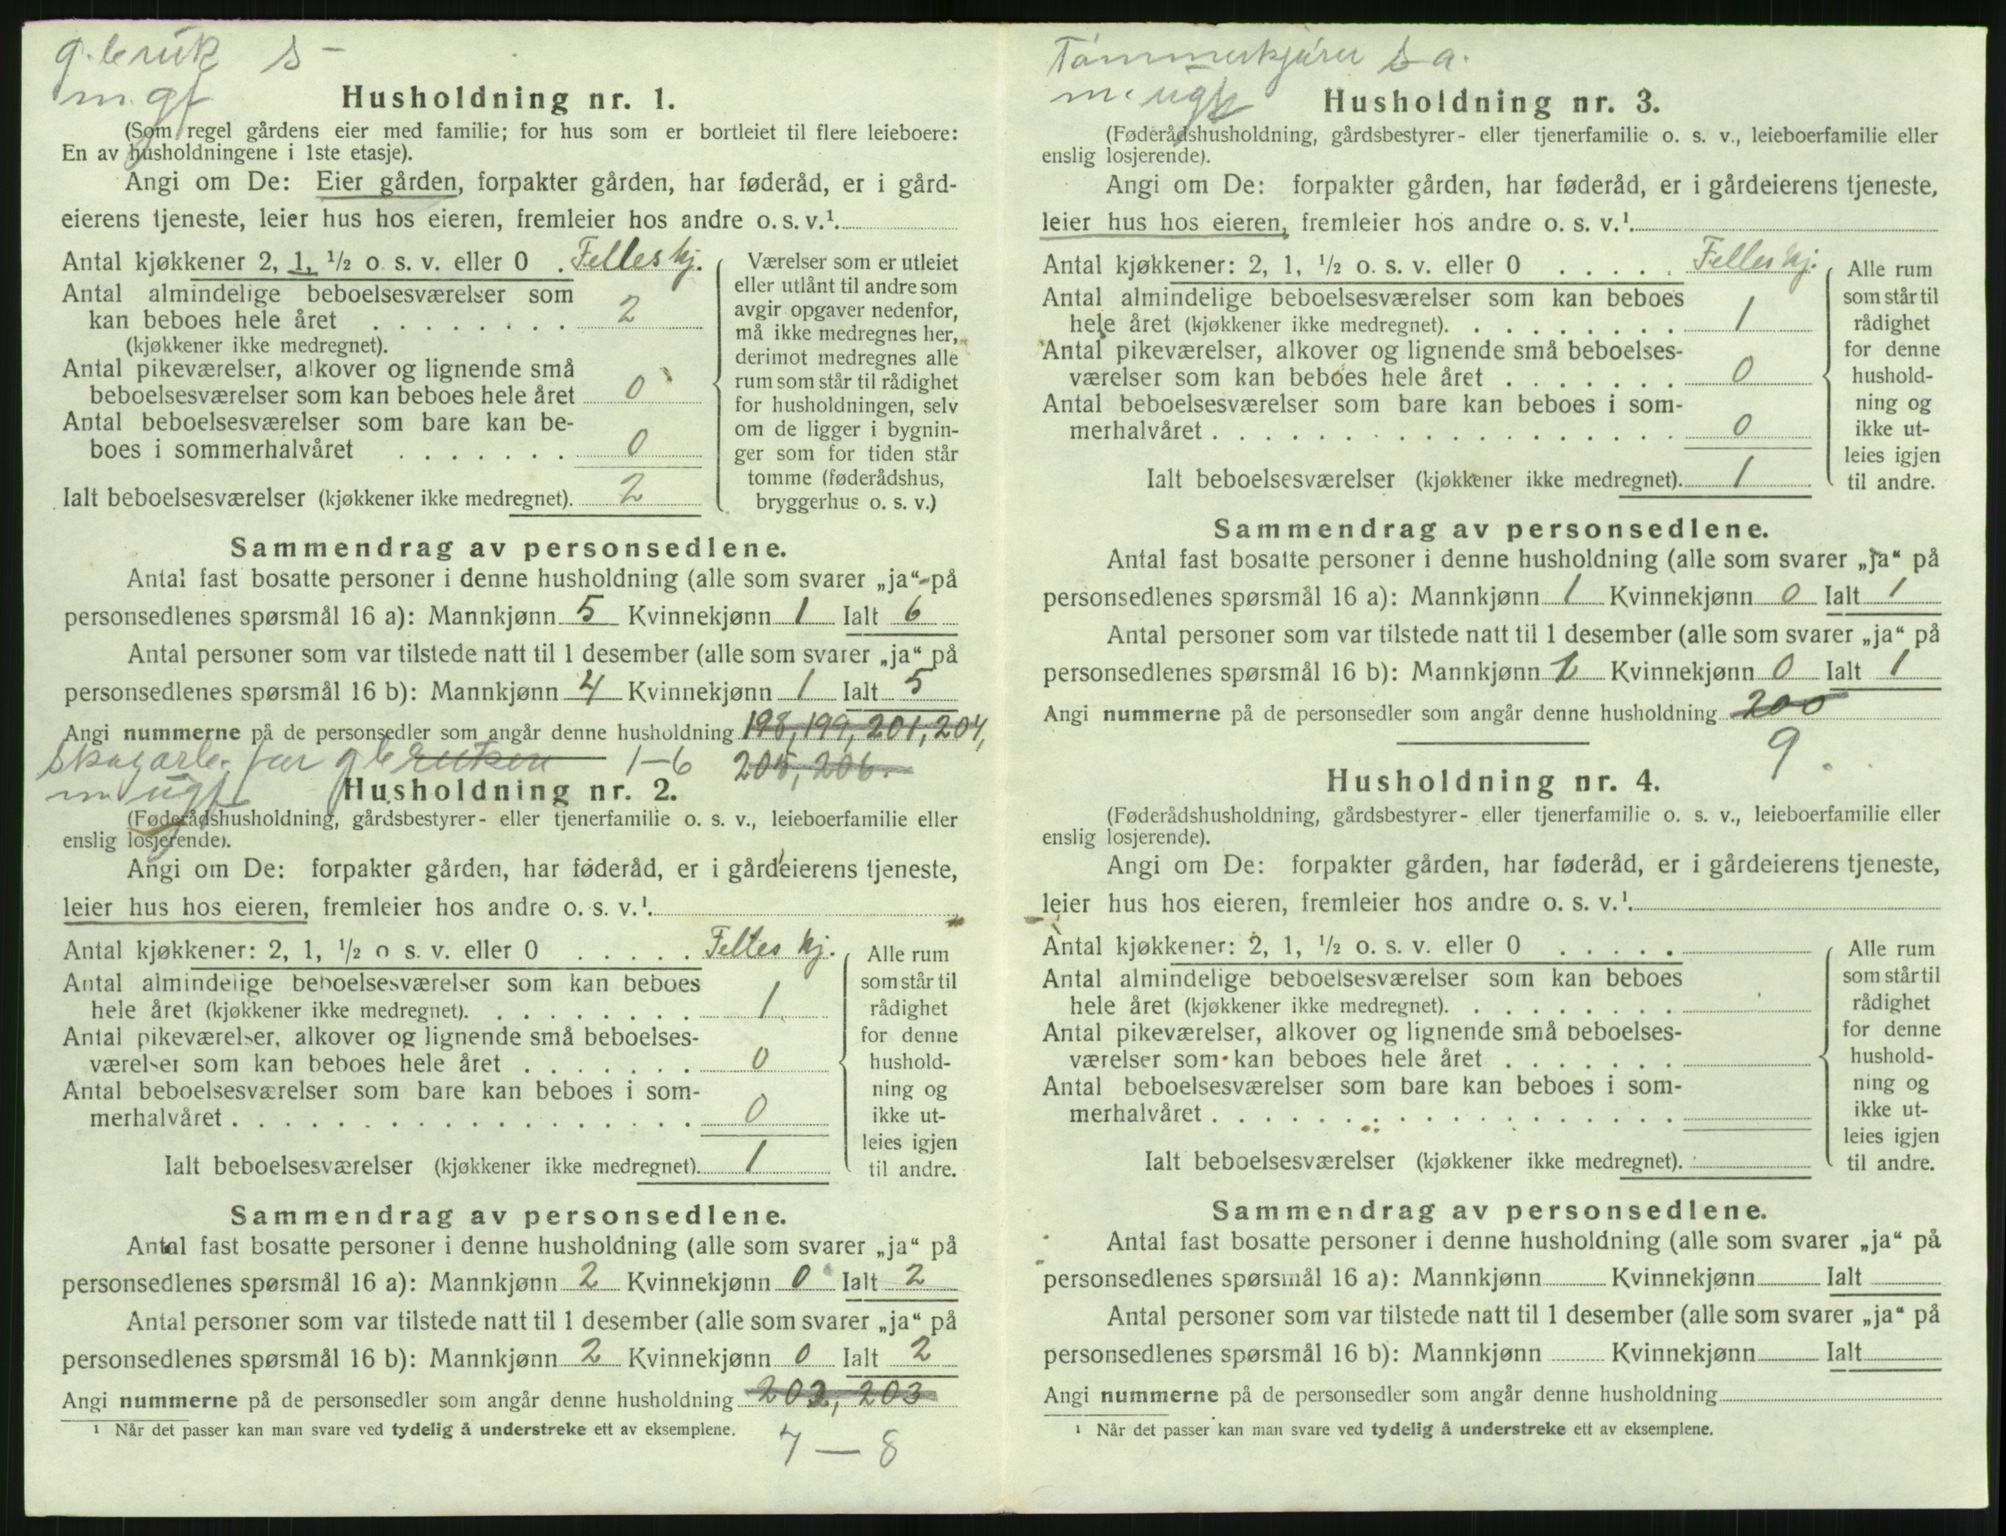 g.bruk S –
m. gf
Husholdning nr. 1.
(Som regel gårdens eier med familie; for hus som er bortleiet til flere leieboere:
En av husholdningene i 1ste etasje).
Angi om De: Eier gården, forpakter gården, har føderåd, er i gård-
eierens tjeneste, leier hus hos eieren, fremleier hos andre o. s. v.¹.
Antal kjøkkener 2, 1, ½ o. s. v. eller 0 . Felles kj.
Antal almindelige beboelsesværelser som
kan beboes hele året . . . . . . . 2
(kjøkkener ikke medregnet).
Antal pikeværelser, alkover og lignende små
beboelsesværelser som kan beboes hele året 0
Antal beboelsesværelser som bare kan be-
boes i sommerhalvåret . . . . . . . 0
Ialt beboelsesværelser (kjøkkener ikke medregnet). 2
Værelser som er utleiet
eller utlånt til andre som
avgir opgaver nedenfor,
må ikke medregnes her,
derimot medregnes alle
rum som står til rådighet
for husholdningen, selv
om de ligger i bygnin-
ger som for tiden står
tomme (føderådshus,
bryggerhus o. s. v.)
Sammendrag av personsedlene.
Antal fast bosatte personer i denne husholdning (alle som svarer „ja“ på
personsedlenes spørsmål 16 a): Mannkjønn 5 Kvinnekjønn 1 Ialt 6
Antal personer som var tilstede natt til 1 desember (alle som svarer „ja“ på
personsedlenes spørsmål 16 b): Mannkjønn 4 Kvinnekjønn 1 Ialt 5
Angi nummerne på de personsedler som angår denne husholdning 198, 199, 201, 204,
1–6 205, 206.
m ugf
Husholdning nr. 2.
(Føderådshusholdning, gårdsbestyrer- eller tjenerfamilie o. s. v., leieboerfamilie eller
enslig losjerende).
Angi om De: forpakter gården, har føderåd, er i gårdeierens tjeneste,
leier hus hos eieren, fremleier hos andre o. s. v.¹.
Antal kjøkkener: 2, 1, ½ o. s. v. eller 0 . . . . . Felles kj.
Antal almindelige beboelsesværelser som kan beboes
hele året (kjøkkener ikke medregnet). . . . . . . . . 1
Antal pikeværelser, alkover og lignende små beboelses-
værelser som kan beboes hele året . . . . . . . 0
Antal beboelsesværelser som bare kan beboes i som-
merhalvåret . . . . . . . . . . . . . . . . . 0
Ialt beboelsesværelser (kjøkkener ikke medregnet). 1
Alle rum
som står til
rådighet
for denne
hushold-
ning og
ikke ut-
leies igjen
til andre.
Sammendrag av personsedlene.
Antal fast bosatte personer i denne husholdning (alle som svarer „ja“ på
personsedlenes spørsmål 16 a): Mannkjønn 2 Kvinnekjønn 0 Ialt 2
Antal personer som var tilstede natt til 1 desember (alle som svarer „ja“ på
personsedlenes spørsmål 16 b): Mannkjønn 2 Kvinnekjønn 0 Ialt 2
Angi nummerne på de personsedler som angår denne husholdning 202, 203
¹ Når det passer kan man svare ved tydelig å understreke ett av eksemplene.
7 – 8
Tømmerkjører s a.
m. ugf
Husholdning nr. 3.
(Føderådshusholdning, gårdsbestyrer- eller tjenerfamilie o. s. v., leieboerfamilie eller
enslig losjerende).
Angi om De: forpakter gården, har føderåd, er i gårdeierens tjeneste,
leier hus hos eieren, fremleier hos andre o. s. v.¹.
Antal kjøkkener: 2, 1, ½ o. s. v. eller 0 . . . . . Felles kj.
Antal almindelige beboelsesværelser som kan beboes
hele året (kjøkkener ikke medregnet). . . . . . . . . 1
Antal pikeværelser, alkover og lignende små beboelses-
værelser som kan beboes hele året . . . . . . . 0
Antal beboelsesværelser som bare kan beboes i som-
merhalvåret . . . . . . . . . . . . . . . . . 0
Ialt beboelsesværelser (kjøkkener ikke medregnet). 1
Alle rum
som står til
rådighet
for denne
hushold-
ning og
ikke ut-
leies igjen
til andre.
Sammendrag av personsedlene.
Antal fast bosatte personer i denne husholdning (alle som svarer „ja“ på
personsedlenes spørsmål 16 a): Mannkjønn 1 Kvinnekjønn 0 Ialt 1
Antal personer som var tilstede natt til 1 desember (alle som svarer „ja“ på
personsedlenes spørsmål 16 b): Mannkjønn 1 Kvinnekjønn 0 Ialt 1
Angi nummerne på de personsedler som angår denne husholdning 200
9.
Husholdning nr. 4.
(Føderådshusholdning, gårdsbestyrer- eller tjenerfamilie o. s. v., leieboerfamilie eller
enslig losjerende).
Angi om De: forpakter gården, har føderåd, er i gårdeierens tjeneste,
leier hus hos eieren, fremleier hos andre o. s. v.¹.
Antal kjøkkener: 2, 1, ½ o. s. v. eller 0 . . . . .
Antal almindelige beboelsesværelser som kan beboes
hele året (kjøkkener ikke medregnet). . . . . . . . .
Antal pikeværelser, alkover og lignende små beboelses-
værelser som kan beboes hele året . . . . . . .
Antal beboelsesværelser som bare kan beboes i som-
merhalvåret . . . . . . . . . . . . . . . . .
Ialt beboelsesværelser (kjøkkener ikke medregnet).
Alle rum
som står til
rådighet
for denne
hushold-
ning og
ikke ut-
leies igjen
til andre.
Sammendrag av personsedlene.
Antal fast bosatte personer i denne husholdning (alle som svarer „ja“ på
personsedlenes spørsmål 16 a): Mannkjønn Kvinnekjønn Ialt
Antal personer som var tilstede natt til 1 desember (alle som svarer „ja“ på
personsedlenes spørsmål 16 b): Mannkjønn Kvinnekjønn Ialt
Angi nummerne på de personsedler som angår denne husholdning
¹ Når det passer kan man svare ved tydelig å understreke ett av eksemplene.